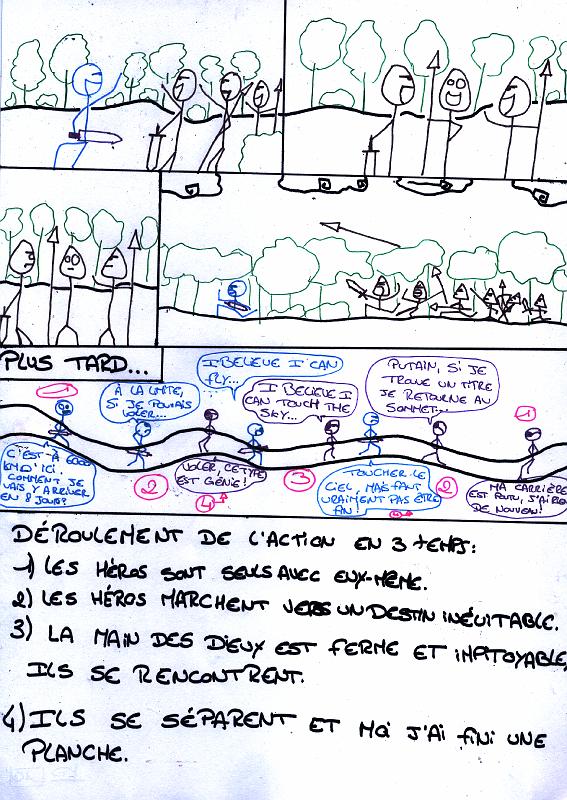 PLUS TARD...
1
C'EST À 6000
KM D'ICI.
COMMENT JE
VAIS Y ARRIVER
EN 8 JOURS?
À LA LIMITE,
SI JE POUVAIS
VOLER...
2
I BELIEVE I CAN
FLY...
VOLER, CE TYPE
EST GÉNIE!
4
I BELIEVE I
CAN TOUCH THE
SKY...
3
TOUCHER LE
CIEL, MAIS FAUT
VRAIMENT PAS ÊTRE
FIN!
4
PUTAIN, SI JE
TROUVE UN TITRE
JE RETOURNE AU
SOMMET...
2
1
MA CARRIÈRE
EST FOUTU, J'AI RIEN
DE NOUVEAU!
DÉROULEMENT DE L'ACTION EN 3 TEMPS:
1) LES HÉROS SONT SEULS AVEC EUX-MÊME.
2) LES HÉROS MARCHENT VERS UN DESTIN INÉVITABLE.
3) LA MAIN DES DIEUX EST FERME ET IMPITOYABLE,
ILS SE RENCONTRENT.
4) ILS SE SÉPARENT ET MOI J'AI FINI UNE
PLANCHE.